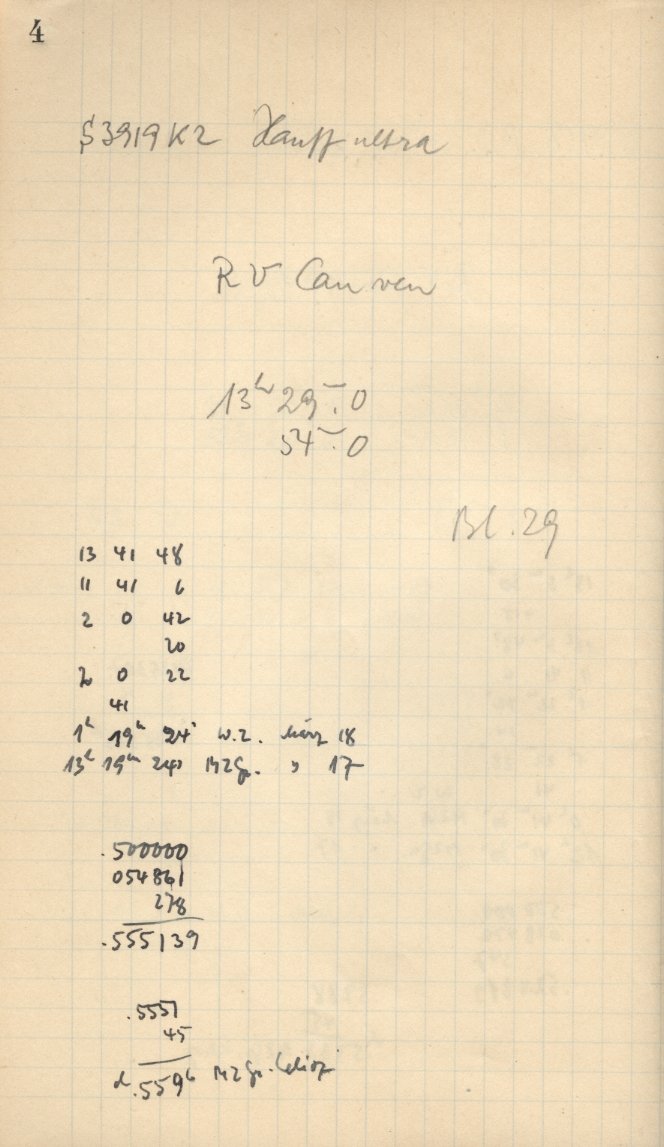 4
S3919K2 Hauff ultra
RV Can ven
13ʰ 29ᵐ.0
54ᵐ.0
Bl. 29
13 41 48
11 41 6
2 0 42
20
2 0 22
41
1ʰ 19ᵐ 24ˢ W.Z. März 18
13ʰ 19ᵐ 24ˢ MZGr. " 17
.500000
054861
278
.555139
.5551
45
d.5596 MZGr. helioz